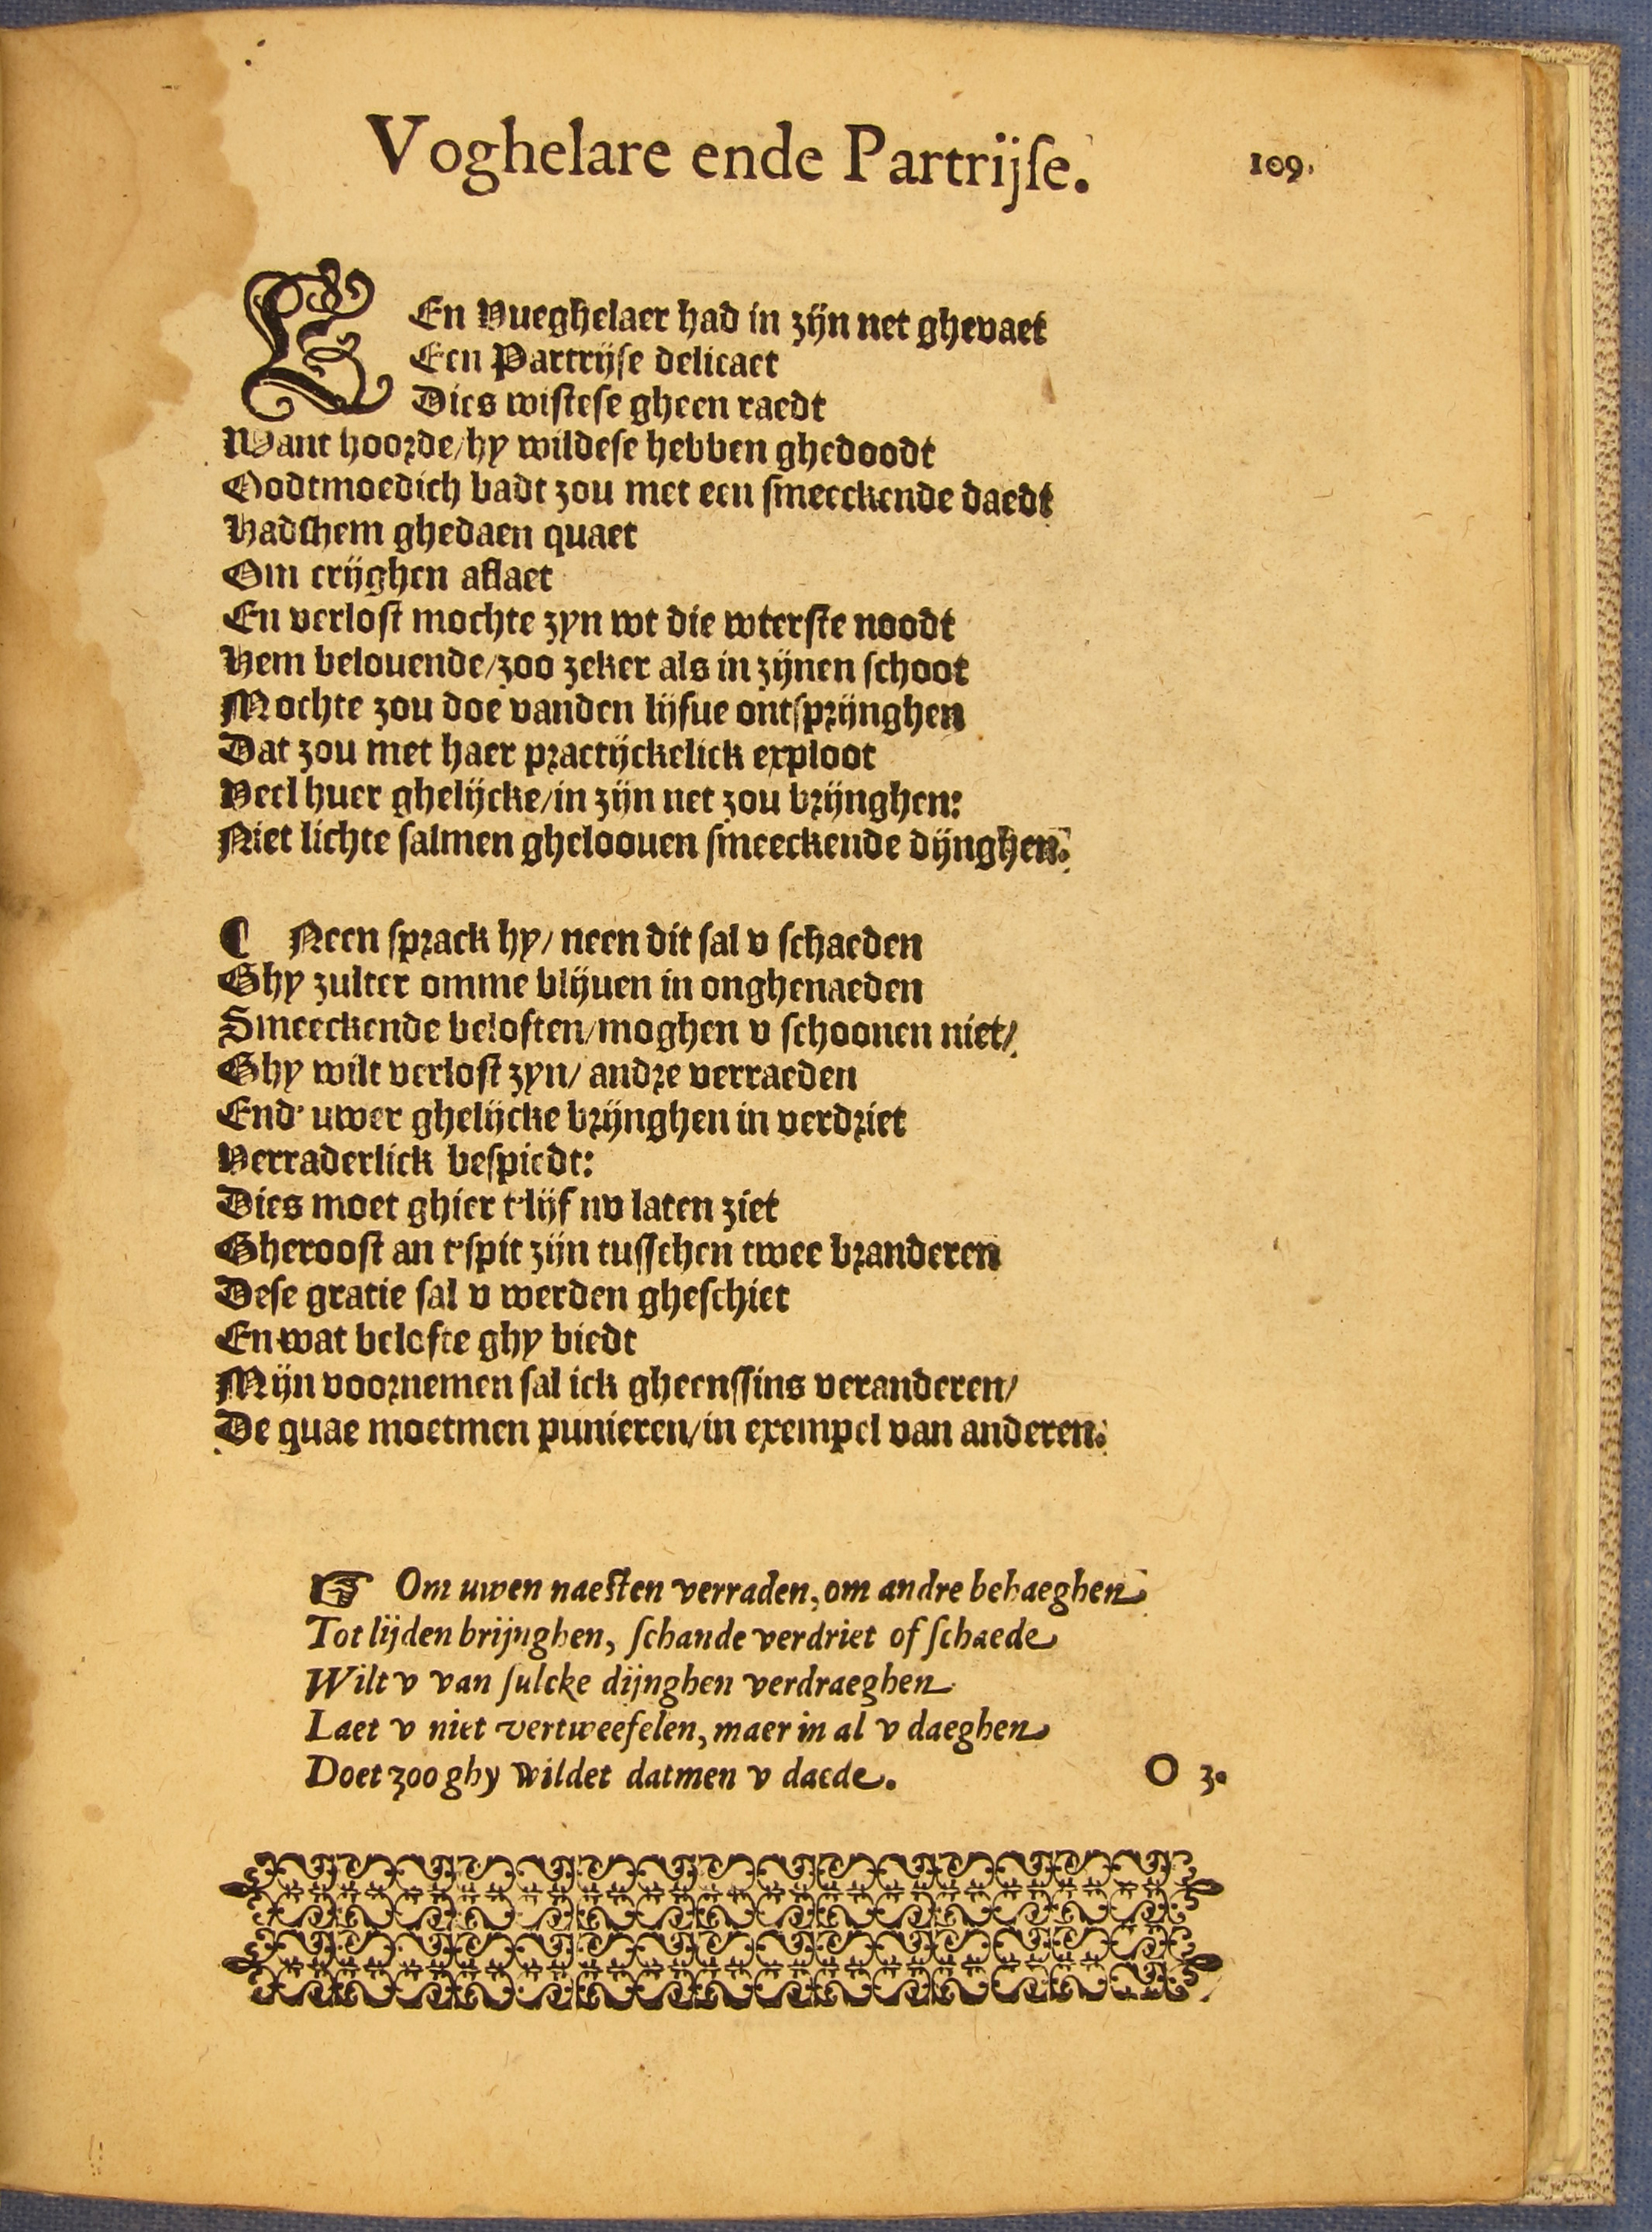 Voghelare ende Partrijse. 109.
EEn Vueghelaer had in zijn net ghevaet
Een Partrijse delicaet
Dies wistese gheen raedt
Want hoorde/hy wildese hebben ghedoodt
Oodtmoedich badt zou met een smeeckende daedt
Hadshem ghedaen quaet
Om crijghen aflaet
En verlost mochte zyn wt die wterste noodt
Hem belouende/zoo zeker als in zijnen schoot
Mochte zou doe vanden lijfue ontsprijnghen
Dat zou met haer practijckelick exploot
Veel huer ghelijcke/in zijn net zou brijnghen:
Niet lichte salmen gheloouen smeeckende dijnghen.
¶ Neen sprack hy/ neen dit sal v schaeden
Ghy zulter omme blijuen in onghenaeden
Smeeckende beloften/moghen v schoonen niet/
Ghy wilt verlost zyn/ andre verraeden
End' uwer ghelijcke brijnghen in verdriet
Verraderlick bespiedt:
Dies moet ghier t'lijf nv laten ziet
Gheroost an t'spit zijn tusschen twee branderen
Dese gratie sal v werden gheschiet
En wat belofte ghy biedt
Mijn voornemen sal ick gheenssins veranderen/
De quae moetmen punieren/in exempel van anderen.
☞ Om uwen naesten verraden, om andre behaeghen
Tot lijden brijnghen, schande verdriet of schaede
Wilt v van sulcke dijnghen verdraeghen
Laet v niet vertweefelen, maer in al v daeghen
Doet zoo ghy wildet datmen v daede. O 3.